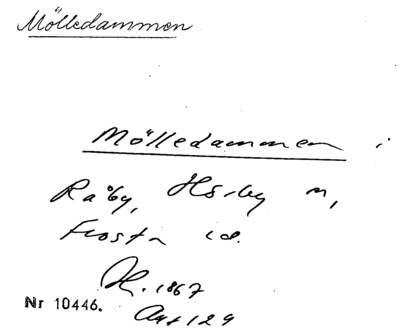 Mölledammen
Mölledammen i
Råby, Hörby sn,
Frosta hd.
H. 1867
Akt 129
Nr 10446.